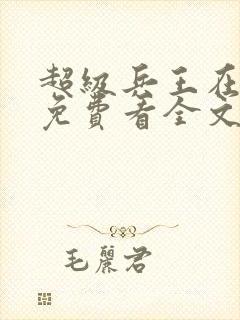 超级兵王在
免费看全文
毛丽君